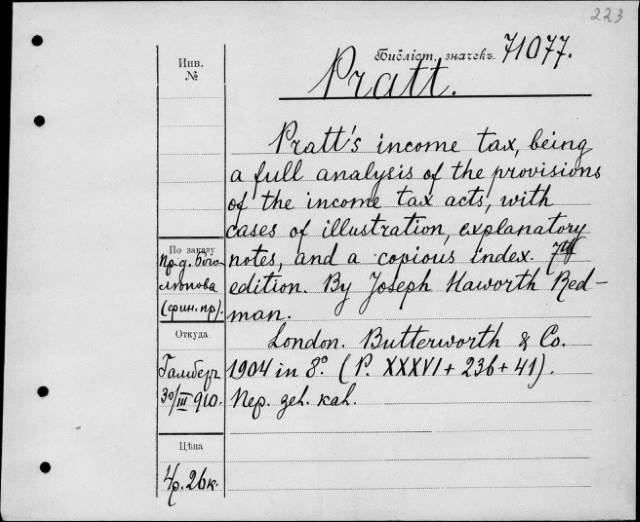 223
Библіот. значекъ 71077.
Pratt.
Инв.
№
Pratt's income tax, being
a full analysis of the provisions
of the income tax acts, with
cases of illustration, explanatory
notes, and a copious index. 7th
edition. By Joseph Haworth Red-
man.
London. Butterworth & Co.
1904 in 8° (P. XXXVI + 236 + 41).
Пер. зел. кал.
По заказу
пр-д. Бого-
лѣпова
(фин. пр).
Откуда
Гамберъ
30/III 910.
Цѣна
4р. 26к.